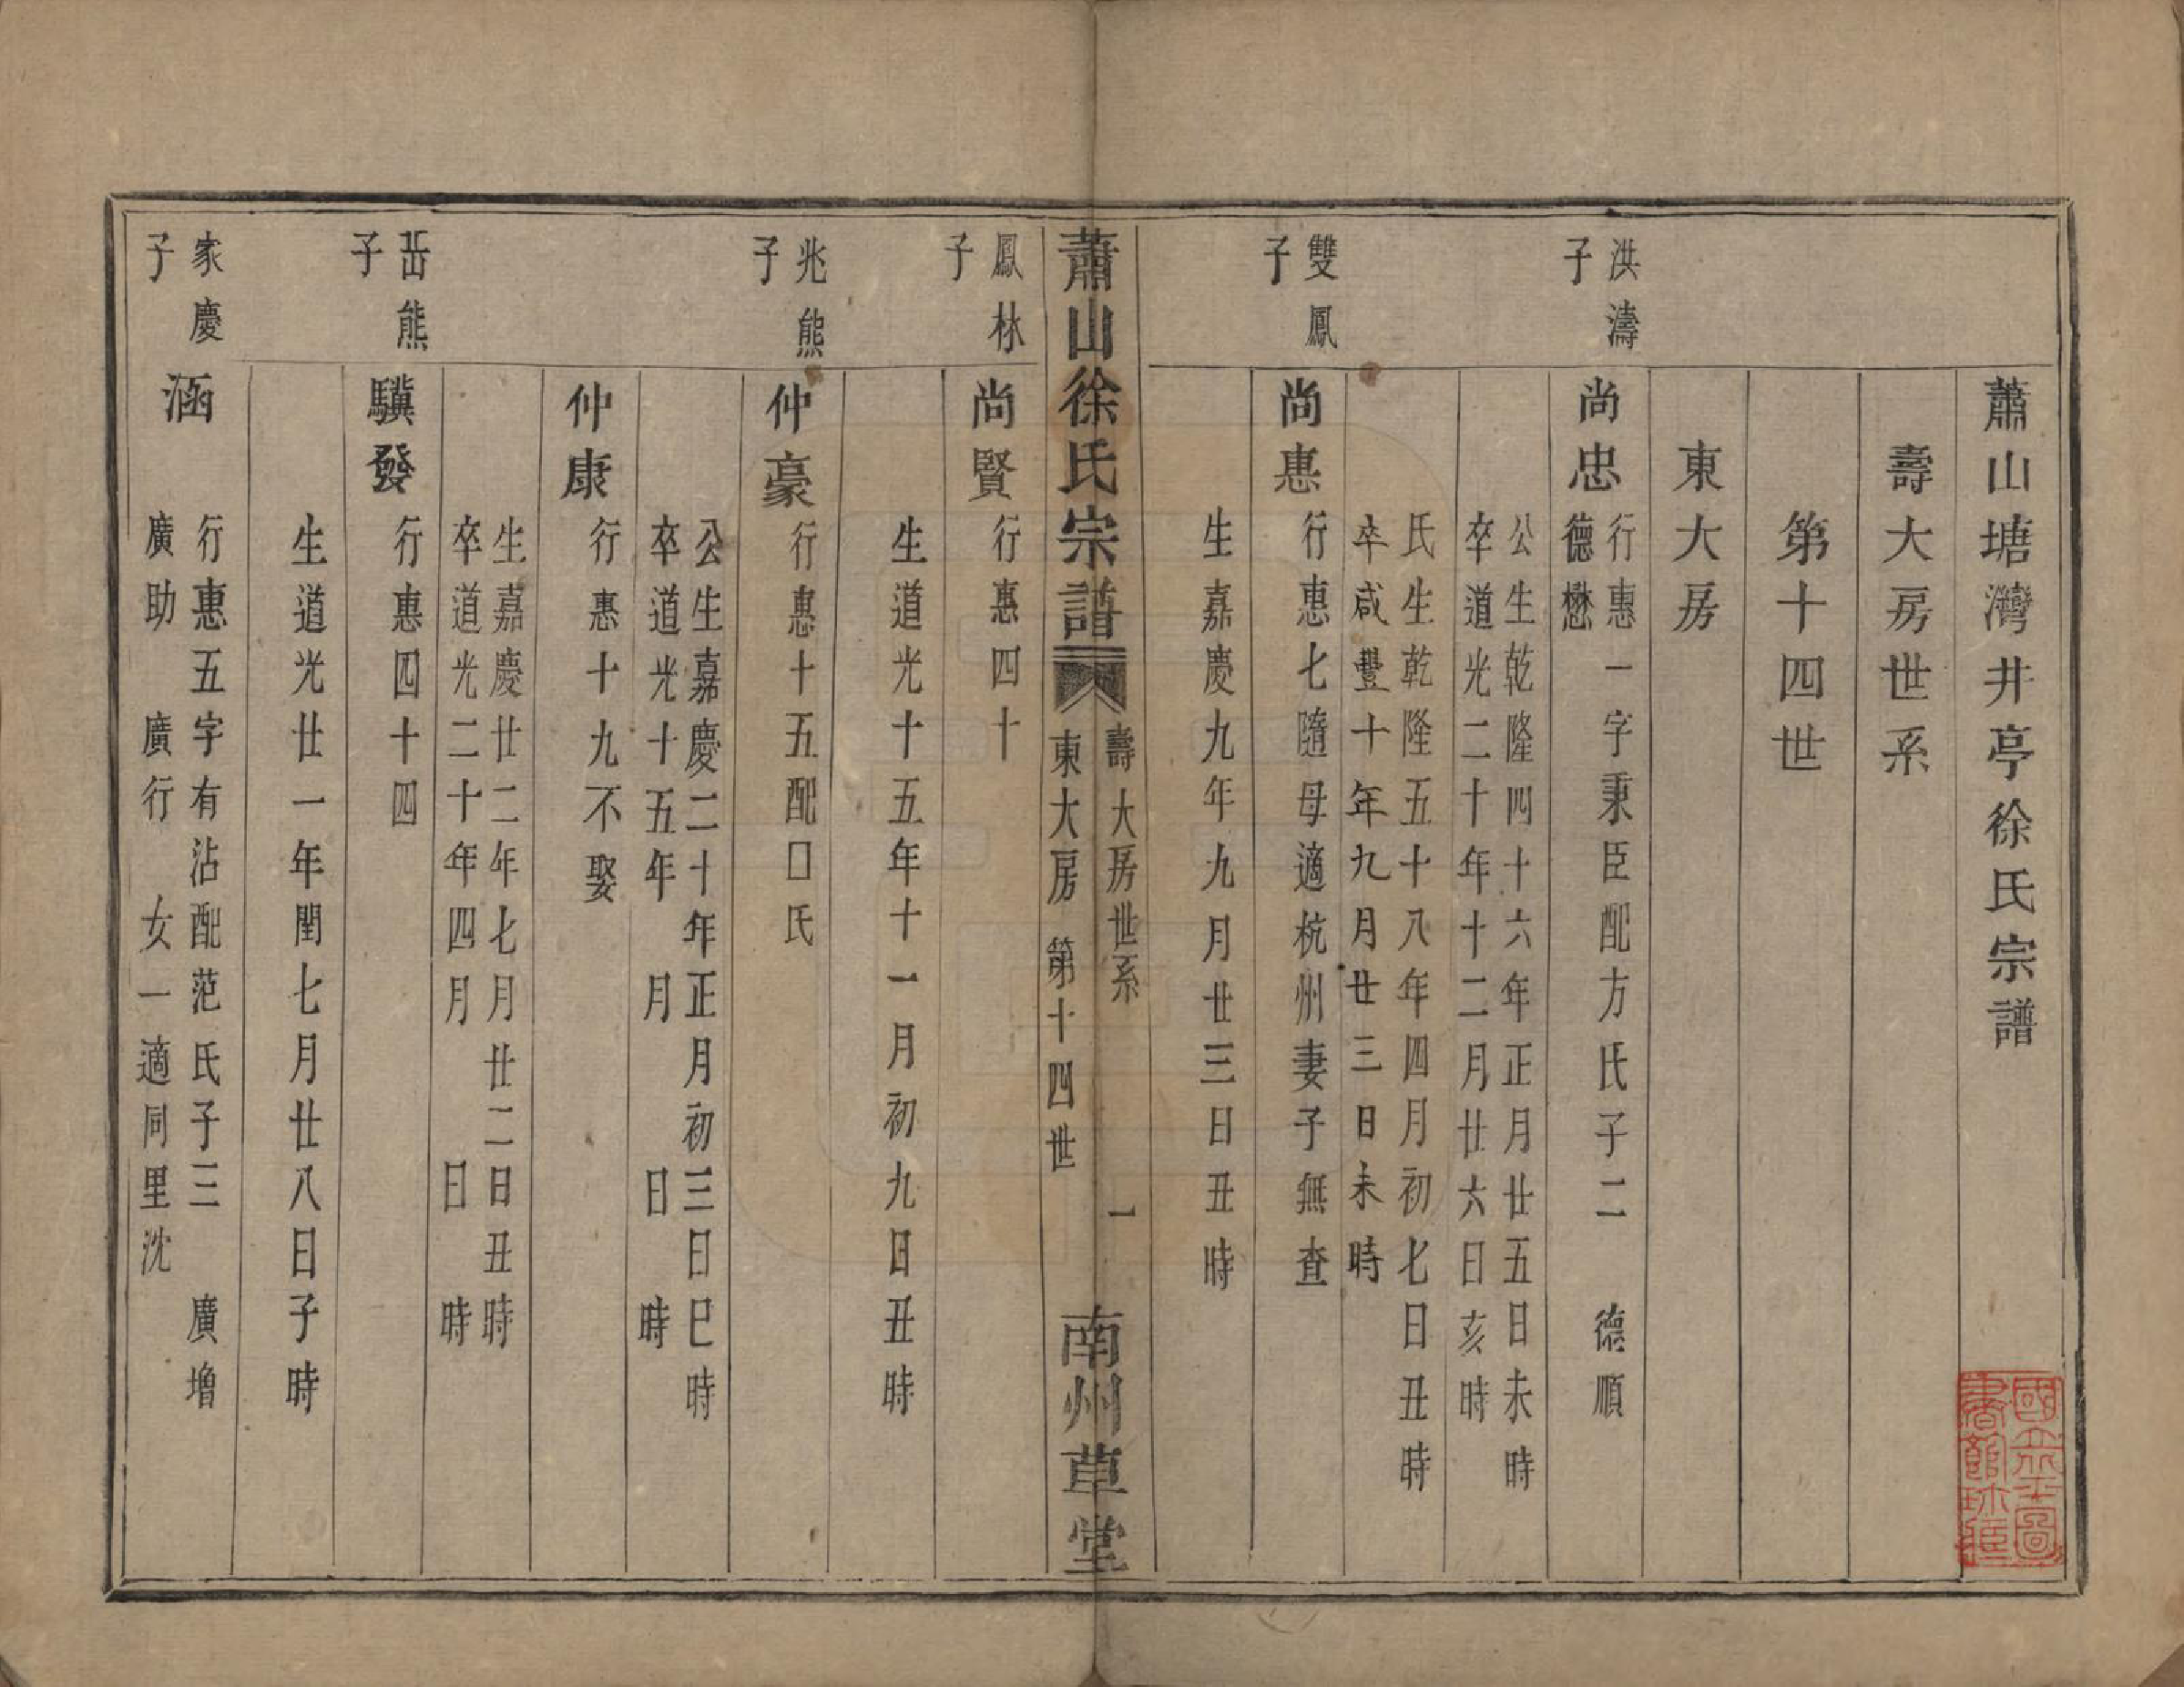 蕭山塘灣井亭徐氏宗譜
壽大房世系
第十四世
東大房
洪濤
子
尚忠
行惠一字秉臣配方氏子二　德順
德懋
公生乾隆四十六年正月廿五日未時
卒道光二十年十二月廿六日亥時
氏生乾隆五十八年四月初七日丑時
卒咸豐十年九月廿三日未時
雙鳳
子
尚惠
行惠七隨母適杭州妻子無查
生嘉慶九年九月廿三日丑時
蕭山徐氏宗譜
壽大房世系　一
東大房　第十四世
南州草堂
鳳林
子
尚賢
行惠四十
生道光十五年十一月初九日丑時
兆熊
子
仲豪
行惠十五配口氏
公生嘉慶二十年正月初三日巳時
卒道光十五年　月　日　時
仲康
行惠十九不娶
生嘉慶廿二年七月廿二日丑時
卒道光二十年四月　日　時
岳熊
子
驥發
行惠四十四
生道光廿一年閏七月廿八日子時
家慶
子
涵
行惠五字有沾配范氏子三　廣增
廣助　廣行　女一適同里沈
國立北平圖
書館珍藏